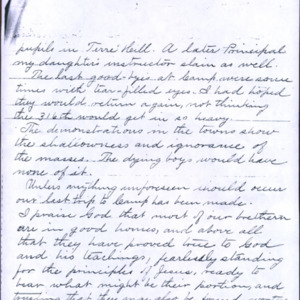 pupils in Terre Hill. A later Principal
my daughter's instructor slain as well.
The last good-byes at Camp were some
times with tear-filled eyes. I had hoped
they would return again, not thinking
the 316th would get in so heavy.
The demonstrations in the towns show
the shallowness and ignorance of
the masses. The dying boys would have
none of it.
Unless anything unforeseen should occur
our last trip to Camp has been made.
I praise God that most of our brethren
are in good homes, and above all
that they have proved true to God
and his teachings, fearlessly standing
for the principles of Jesus, ready to
bear what might be their portion, and
that they may also be